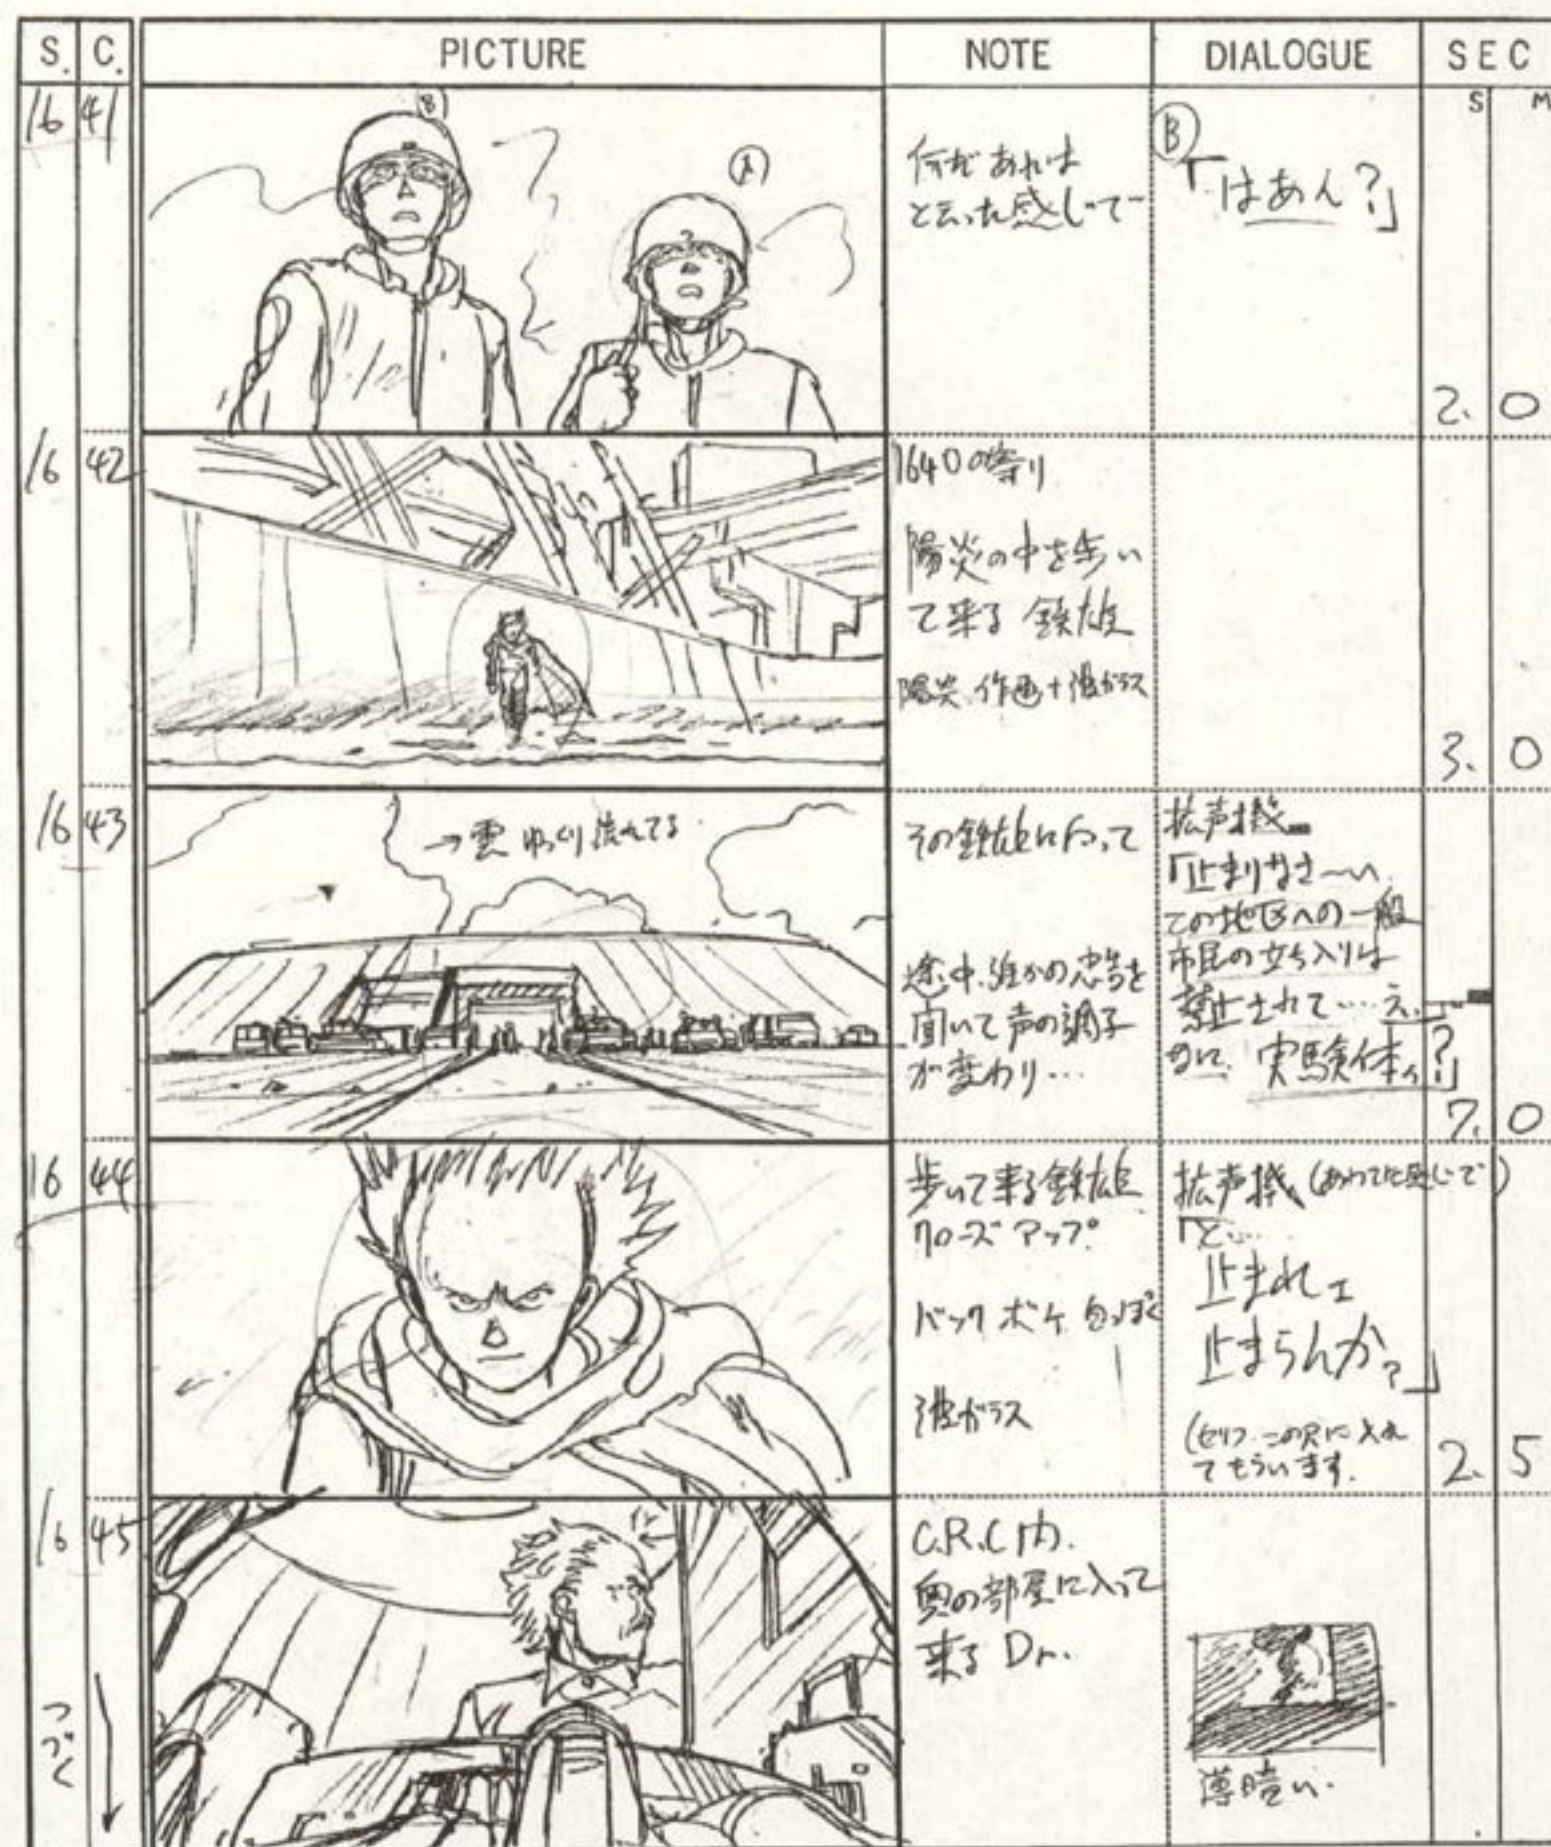 S. C. PICTURE NOTE DIALOGUE SEC
S M
16 41
B
A
何だ あれは
と云った感じでー
B
「はあん?」
2. 0
16 42
1640の寄り
陽炎の中を歩い
て来る 鉄雄
陽炎、作画+波ガラス
3. 0
16 43
→雲 ゆっくり流れてる
その鉄雄に向って
途中、誰かの忠告を
聞いて声の調子
が変わり…
拡声機
「止まりなさ〜い
この地区への一般
市民の立ち入りは
禁止されて……え、
なに、実験体ィ?」
7. 0
16 44
歩いて来る鉄雄
クローズアップ
バックボケ 白っぽく
波ガラス
拡声機 (あわてた感じで)
「と…
止まれェ
止まらんか?」
(セリフ この尺に入れ
てもらいます。
2. 5
16 45
つづく
C.R.C内.
奥の部屋に入って
来る Dr.
薄暗い.